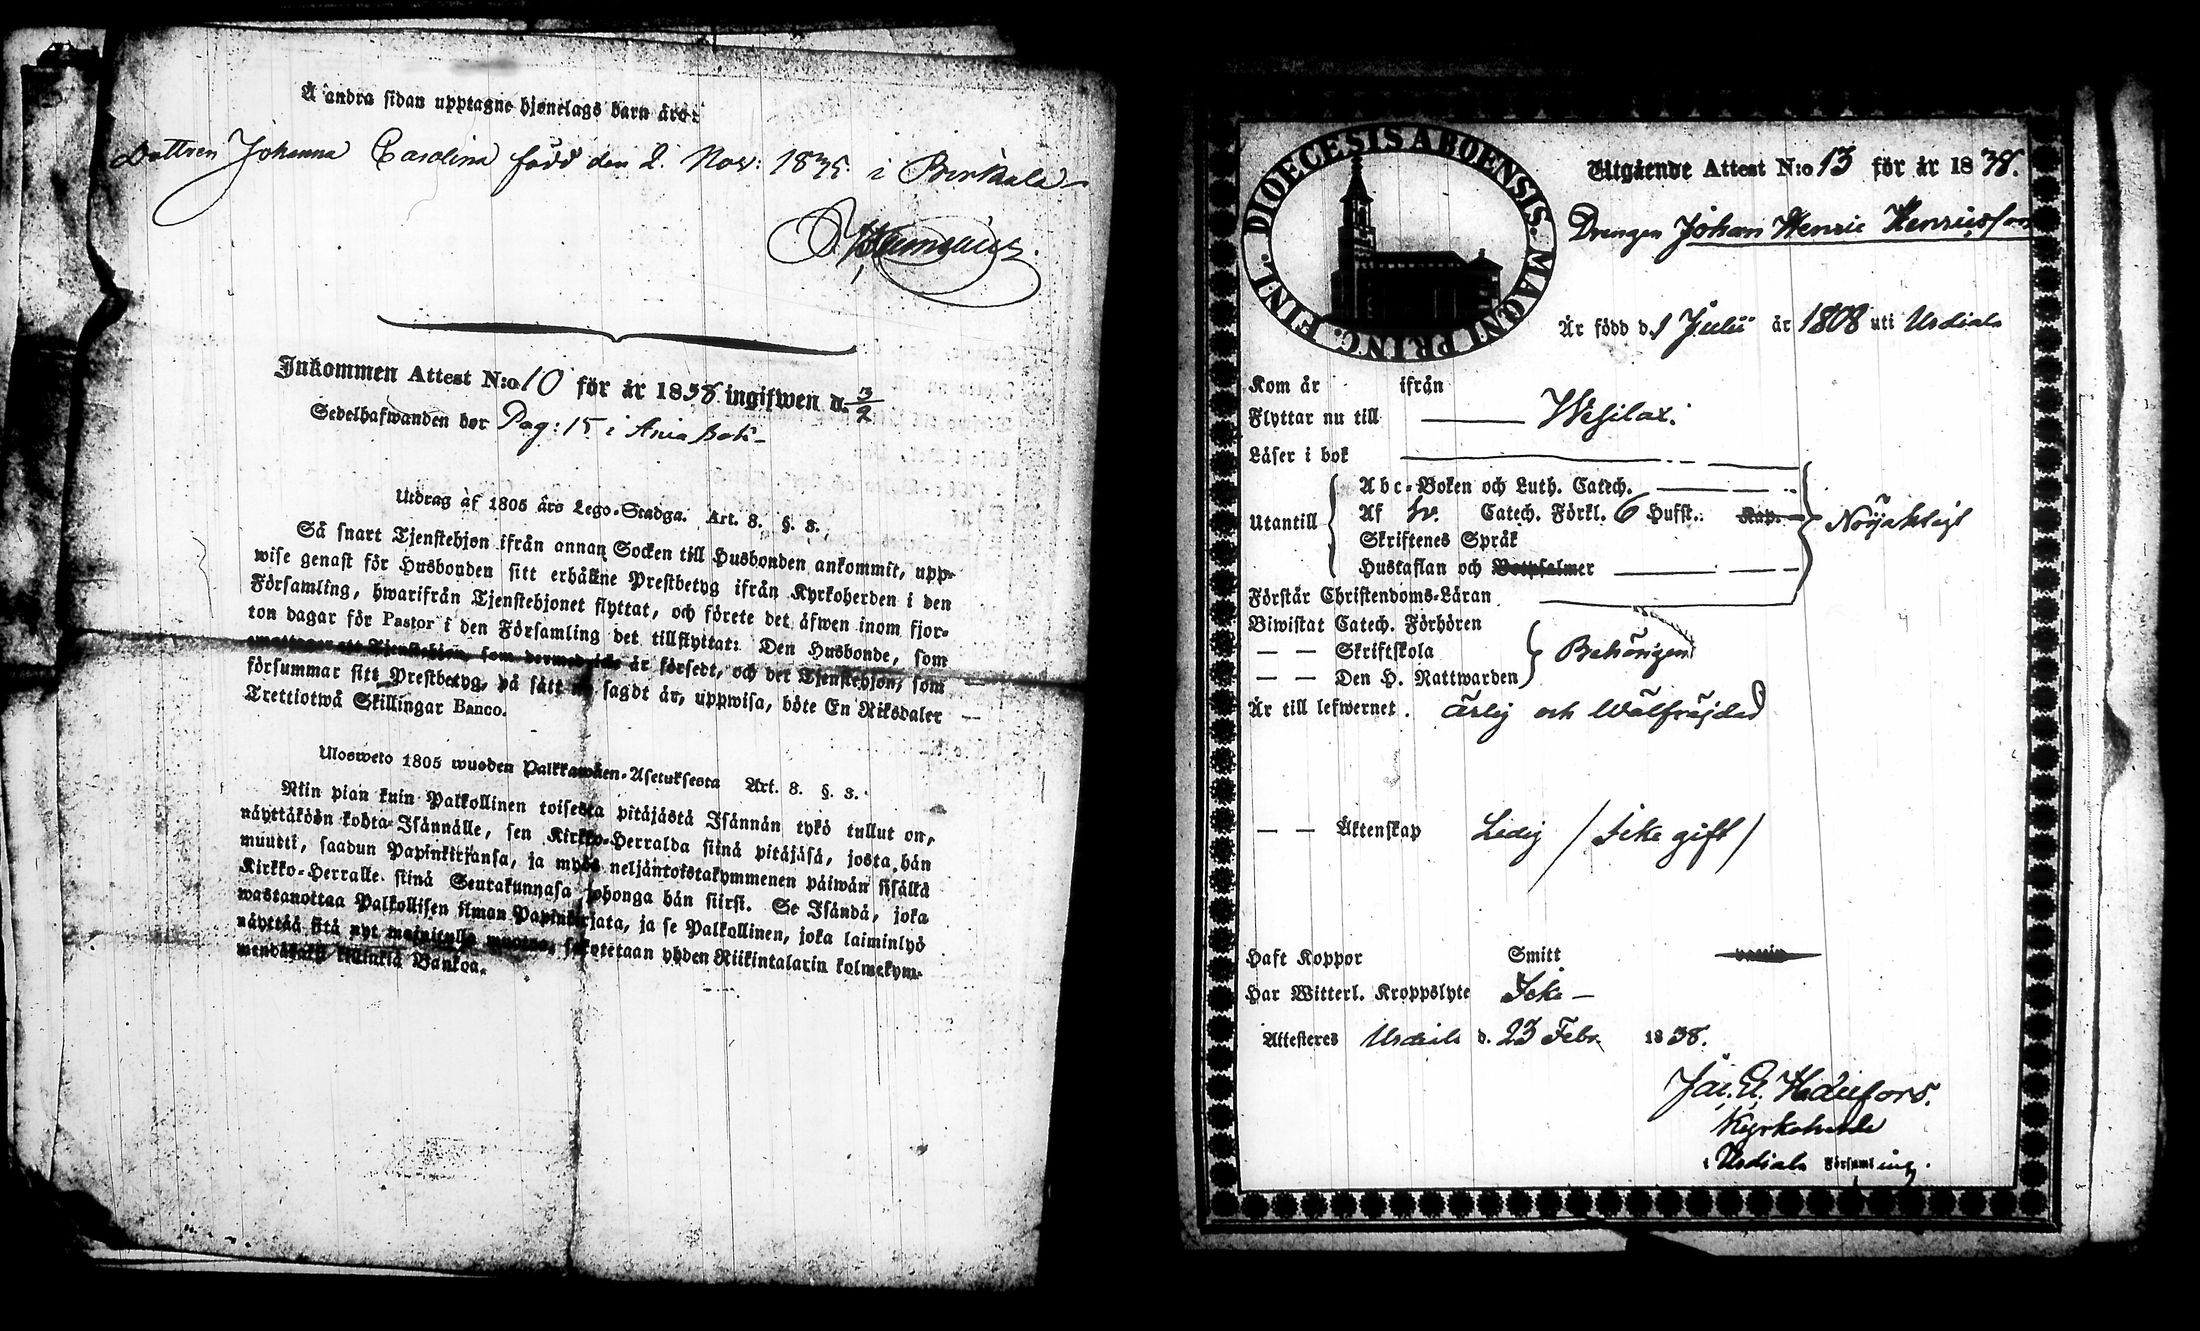 Å andra sidan upptagne hjonelags barn äro:
Dottren Johanna Carolina född den 2. Nov: 1835. i Birkala
Inkommen Attest N:o 10 för år 1838 ingifwen d. 3/2
Sedelhafwanden bor Pag: 15 i
Utdrag af 1805 års Lego-Stadga. Art. 8. §. 3.
Så snart Tjenstehjon ifrån annan Socken till Husbonden ankommit, upp-
wise genast för Husbonden sitt erhållne Prestbetyg ifrån Kyrkoherden i den
Församling, hwarifrån Tjenstehjonet flyttat, och förete det äfwen inom fjor-
ton dagar för Pastor i den Församling det tillflyttat: Den Husbonde, som
emottager ett Tjenstehjon, som dermed icke är försedt, och det Tjenstehjon, som
försummar sitt Prestbetyg, på sätt nu sagdt är, uppwisa, böte En Riksdaler
Trettiotwå Skillingar Banco.
Ulosweto 1805 wuoden Palkkawäen-Asetuksesta Art. 8. §. 3.
Niin pian kuin Palkollinen toisesta pitäjästä Isännän tykö tullut on,
näyttäköön kohta Isännälle, sen Kirkko-Herralda siinä pitäjäsä, josta hän
muutti, saadun Papinkirjansa, ja myös neljäntoistakymmenen päiwän sisällä
Kirkko-Herralle siinä Seurakunnasa johonga hän siirsi. Se Isändä, joka
wastanottaa Palkollisen ilman Papinkirjata, ja se Palkollinen, joka laiminlyö
näyttää sitä nyt mainitulla muotoa, sakotetaan yhden Riikintalarin kolmekym-
mendäkaksi killinkiä Bankoa.
DIOECESIS ABOENSIS. MAGNI PRINC. FINL.
Utgående Attest N:o 13 för år 1838.
Drengen Johan Henric Henricsson
Är född d. 1 Julii år 1808 uti Urdiala
Kom år ifrån
Flyttar nu till Wesilax.
Läser i bok
Abc-Boken och Luth. Catech.
Utantill Af Sv. Catech. Förkl. 6 Hufst. Kap. Nöjaktigt
Skriftenes Språk
Hustaflan och Botpsalmer
Förstår Christendoms-Läran
Biwistat Catech. Förhören
— — Skriftskola Behörigen
— — Den H. Nattwarden
Är till lefwernet. ärlig och Wälfräjdad
— — Äktenskap Ledig / icke gift /
Haft Koppor Smitt vaccin
Har Witterl. Kroppslyte Icke —
Attesteres Urdiala d. 23 Febr. 1838.
Kyrkoherde
i Urdiala Församling.